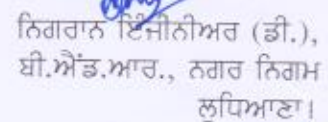 ਨਿਗਰਾਨ ਇੰਜੀਨੀਅਰ (ਡੀ.),
ਬੀ.ਐਂਡ.ਆਰ., ਨਗਰ ਨਿਗਮ
ਲੁਧਿਆਣਾ।